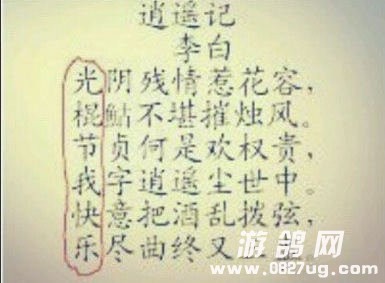 逍遥记
李白
光阴残情惹花容，
棍鲇不堪摧烛风。
节贞何是欢权贵，
我字逍遥尘世中。
快意把酒乱拨弦，
乐尽曲终又
游鸽网
www.0827ug.com